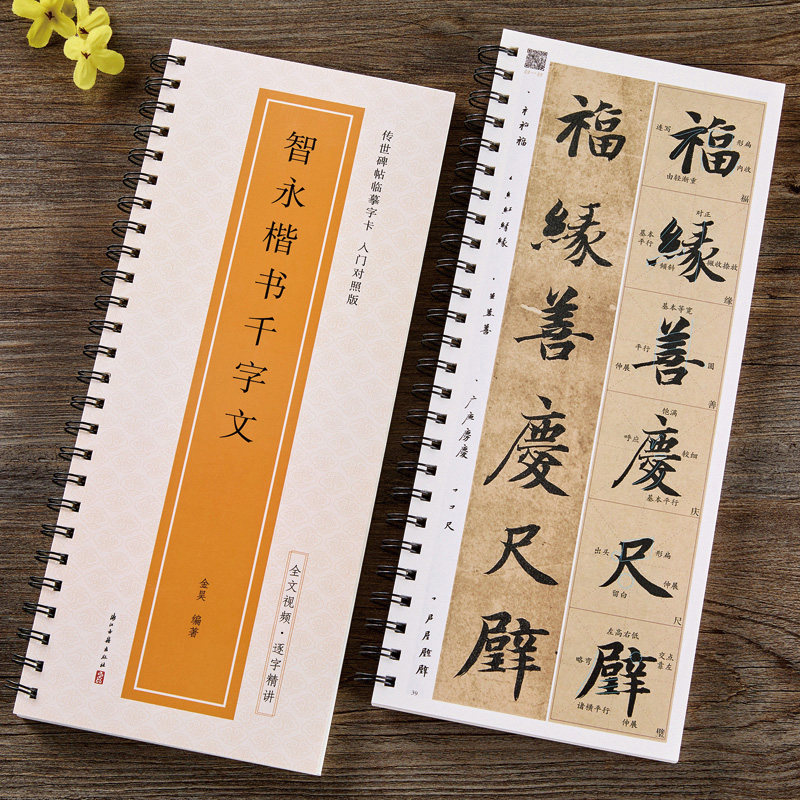 传世碑帖临摹字卡 入门对照版
智永楷书千字文
金昊 编著
全文视频·逐字精讲
浙江古籍出版社
福
缘
善
慶
尺
璧
福
连写
形扁
内收
由轻渐重
福
緣
对正
基本平行
倾斜
撇收捺放
缘
善
基本等宽
平行
伸展
圆
善
慶
饱满
呼应
较细
基本平行
庆
尺
出头
形扁
伸展
留白
尺
璧
左高右低
略弯
交点靠左
诸横平行
伸展
璧
39